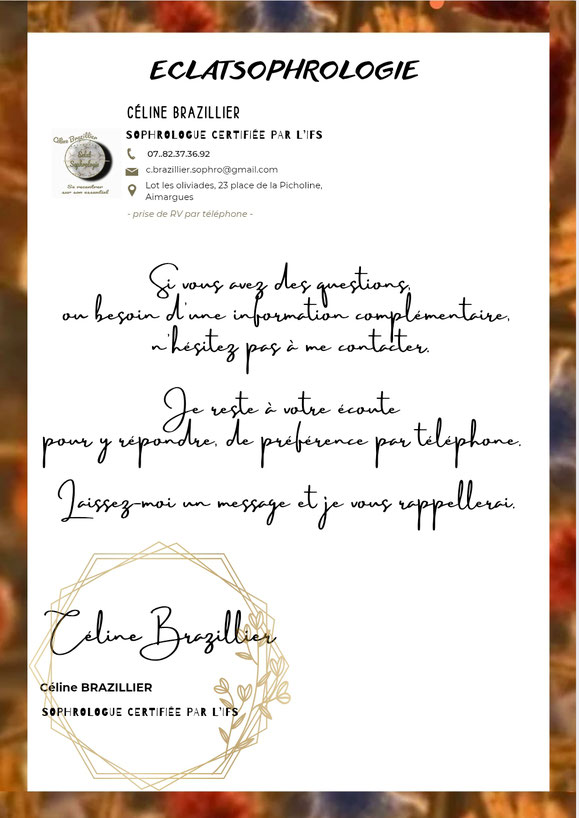 ECLATSOPHROLOGIE
CÉLINE BRAZILLIER
SOPHROLOGUE CERTIFIÉE PAR L'IFS
Céline Brazillier
Eclat
Sophrologie
Se recentrer
sur son essentiel
07..82.37.36.92
c.brazillier.sophro@gmail.com
Lot les oliviades, 23 place de la Picholine,
Aimargues
- prise de RV par téléphone -
Si vous avez des questions,
ou besoin d'une information complémentaire,
n'hésitez pas à me contacter.
Je reste à votre écoute
pour y répondre, de préférence par téléphone.
Laissez-moi un message et je vous rappellerai.
Céline Brazillier
Céline BRAZILLIER
SOPHROLOGUE CERTIFIÉE PAR L'IFS